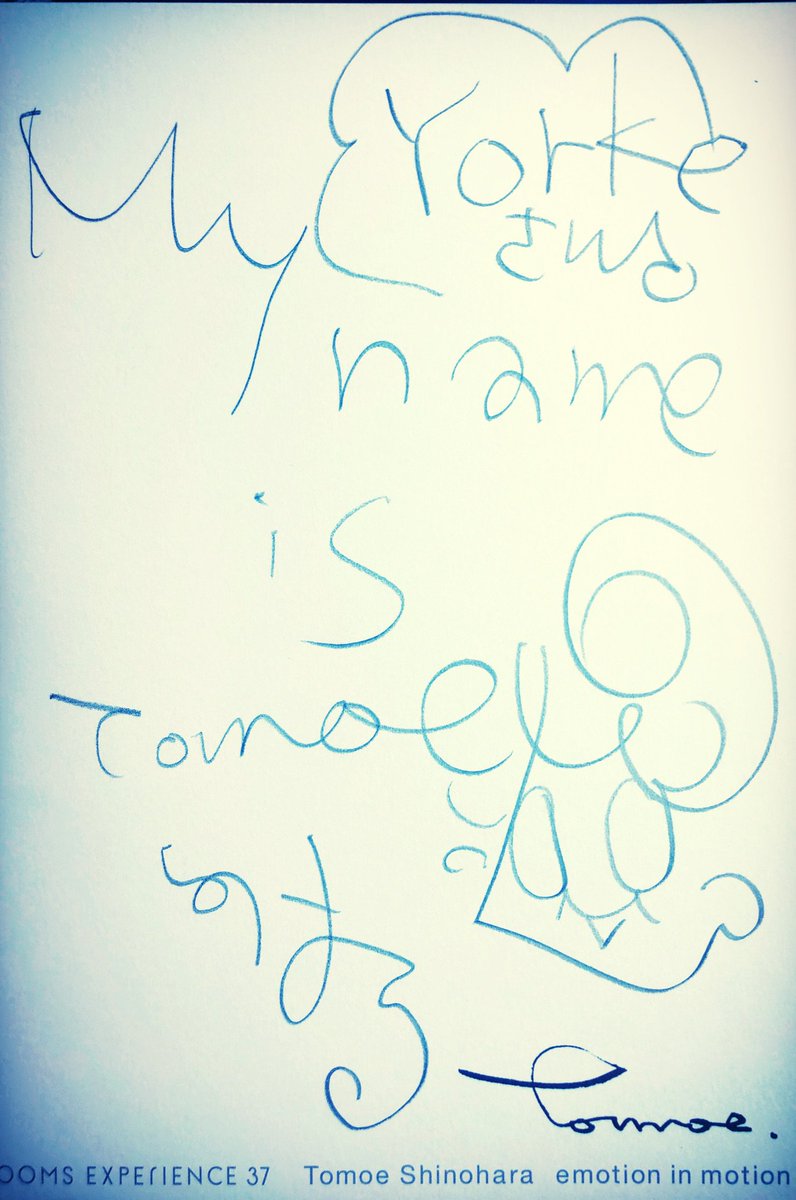 Yorke
さん
My
name
is
Tomoe
Tomoe.
OOMS EXPERIENCE 37 Tomoe Shinohara emotion in motion